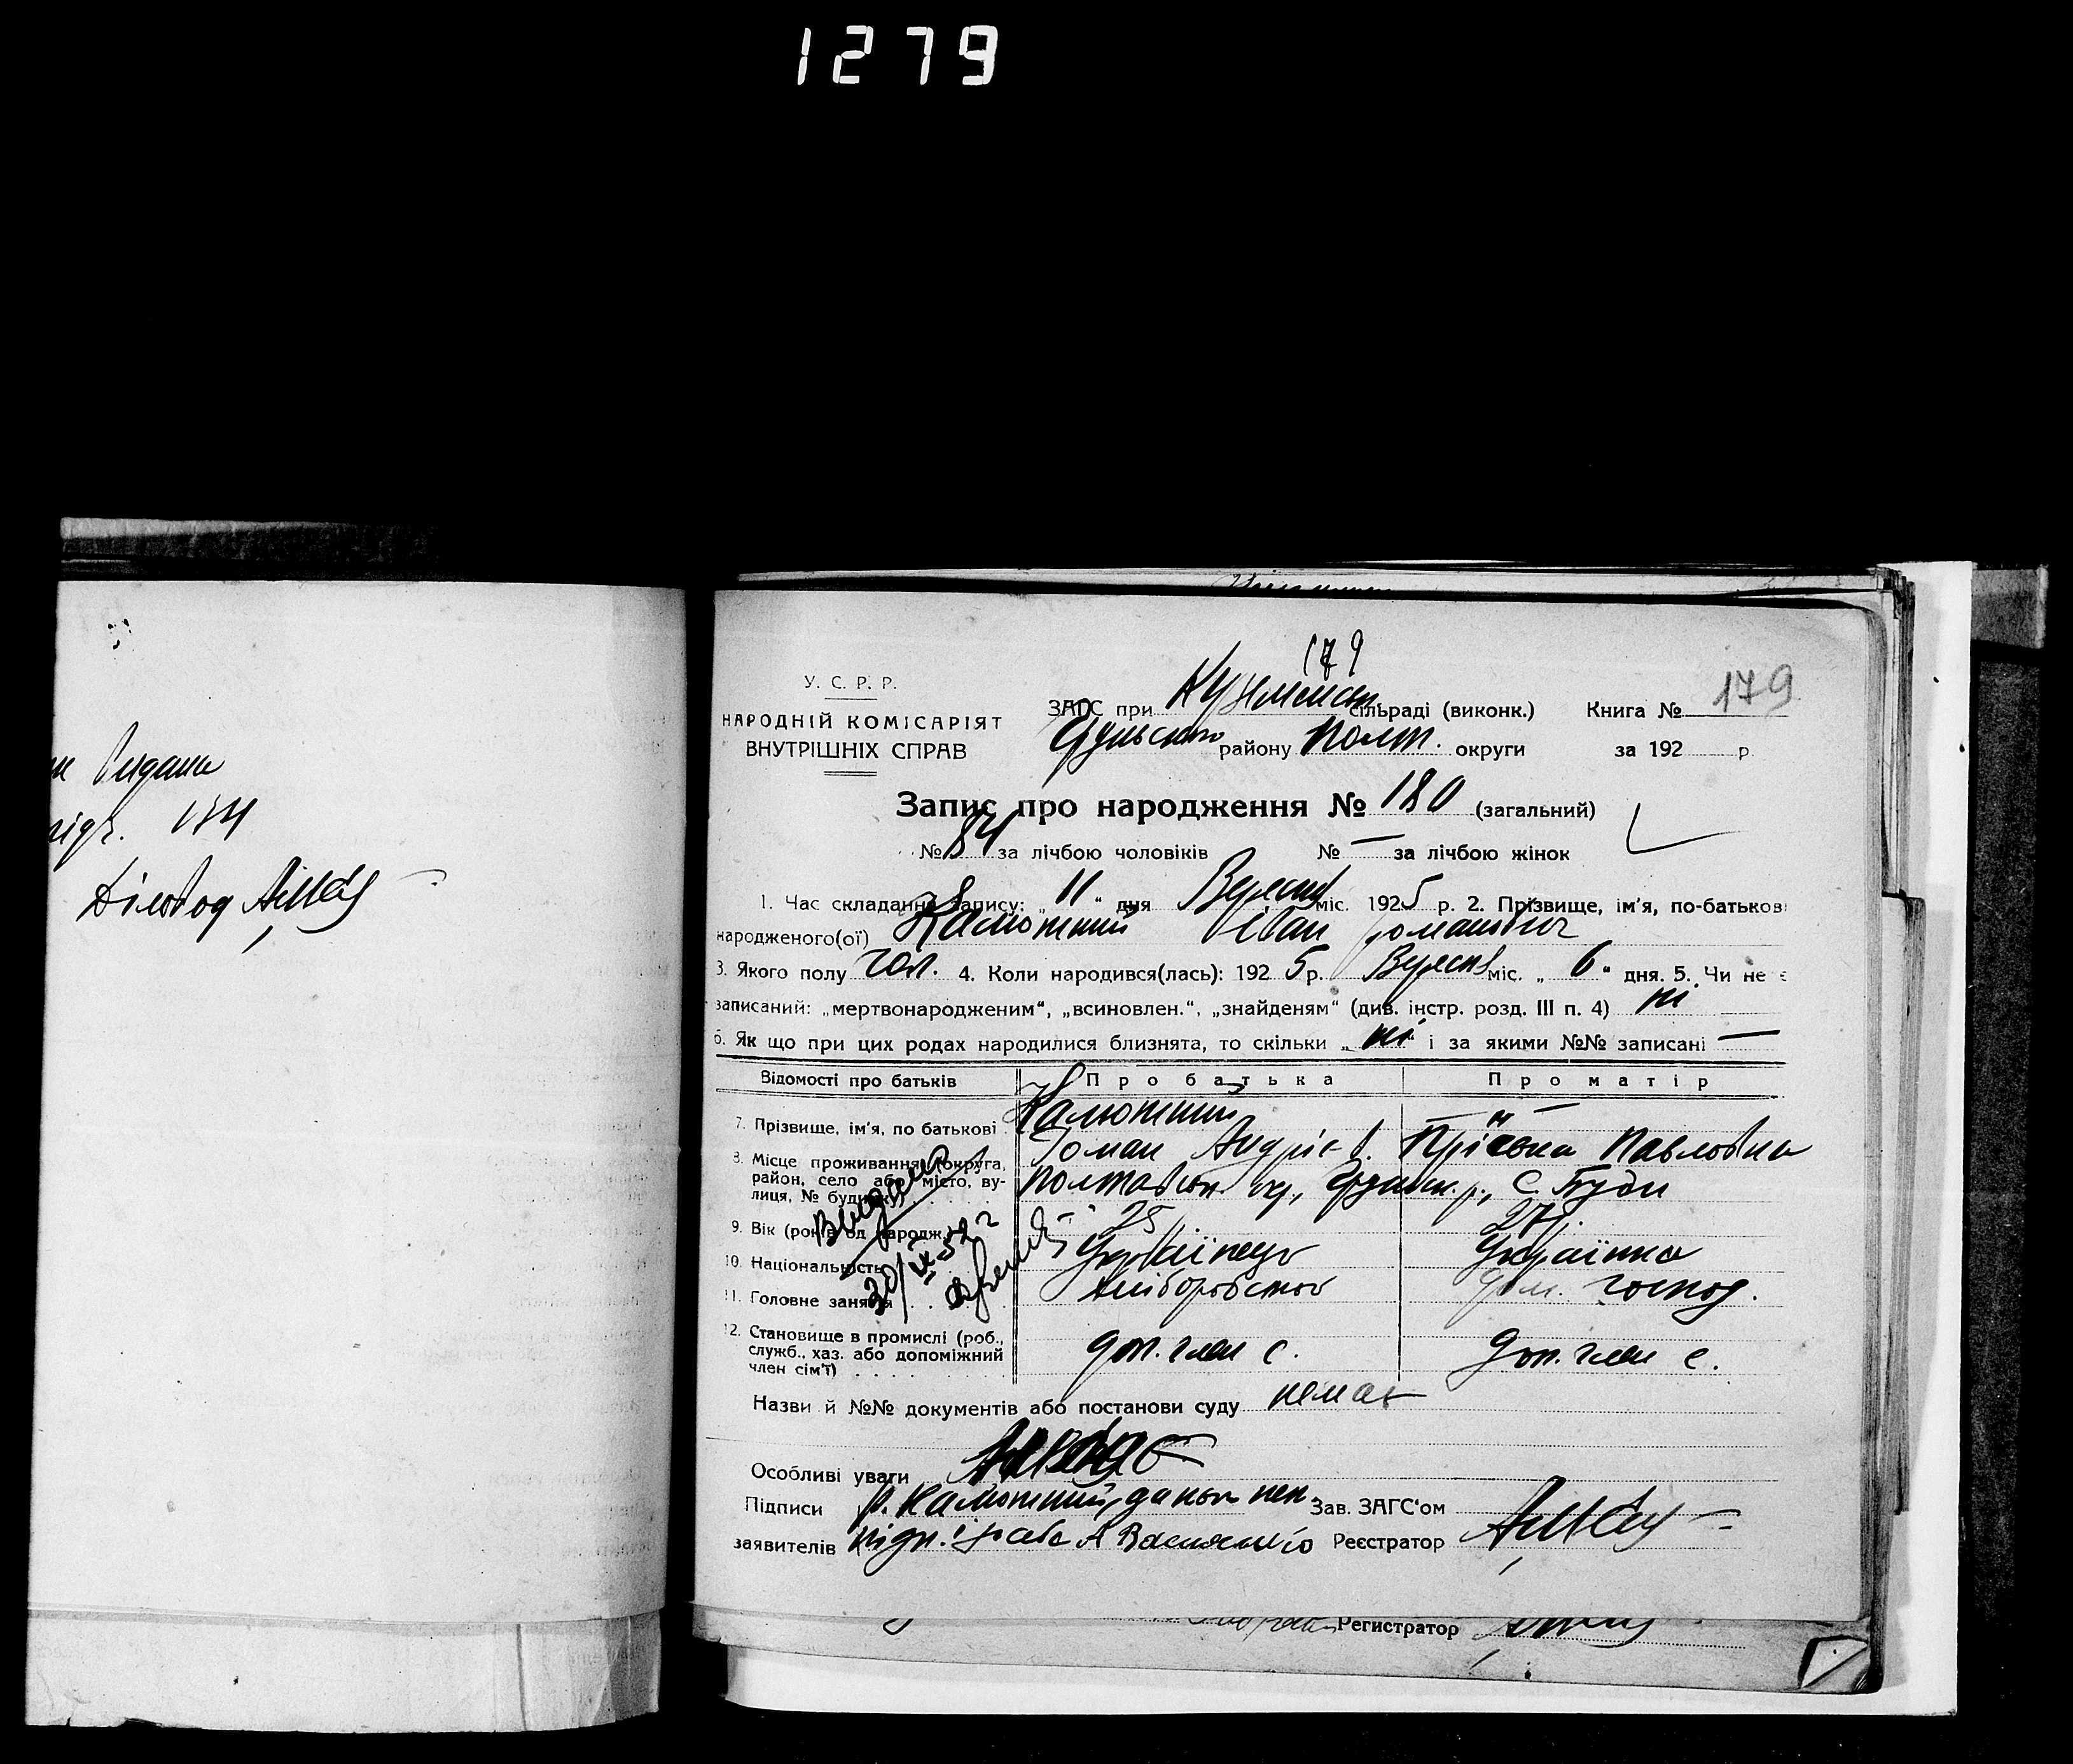 1279
Видана
134
Діловод
179
179
У. С. Р. Р.
НАРОДНІЙ КОМІСАРІЯТ
ВНУТРІШНІХ СПРАВ
ЗАГС при сільраді (виконк.) Книга №
району Полт. округи за 192 р.
Запис про народження № 180 (загальний)
№ 84 за лічбою чоловіків № — за лічбою жінок
1. Час складання запису: „11“ дня Вересня міс. 1925 р. 2. Прізвище, ім'я, по-батькові
народженого(ої) Калюжний Іван Романович
3. Якого полу чол. 4. Коли народився(лась): 1925 р. Вересня міс. „6“ дня. 5. Чи не є
записаний: „мертвонародженим“, „всиновлен.“, „знайденям“ (див. інстр. розд. III п. 4) ні
6. Як що при цих родах народилися близнята, то скільки „ні“ і за якими №№ записані —
Відомості про батьків Про батька Про матір
7. Прізвище, ім'я, по батькові Калюжний — " —
Роман Андрієв. Пріська Павловна
8. Місце проживання (округа, район, село або місто, ву-
лиця, № будинку) Полтавськ. ок., р., С. Буди
9. Вік (років од народж.) 25 р. 27 р.
10. Національність Українець Українка
11. Головне заняття Хліборобство Дом. господ.
12. Становище в промислі (роб.,
служб., хаз. або допоміжний
член сім'ї) доп. член с. доп. член с.
Видано
30/IX-52 г
Назви й №№ документів або постанови суду немає
Особливі уваги
Підписи Р. Калюжний, Зав. ЗАГС'ом
заявителів Реєстратор
Регистратор